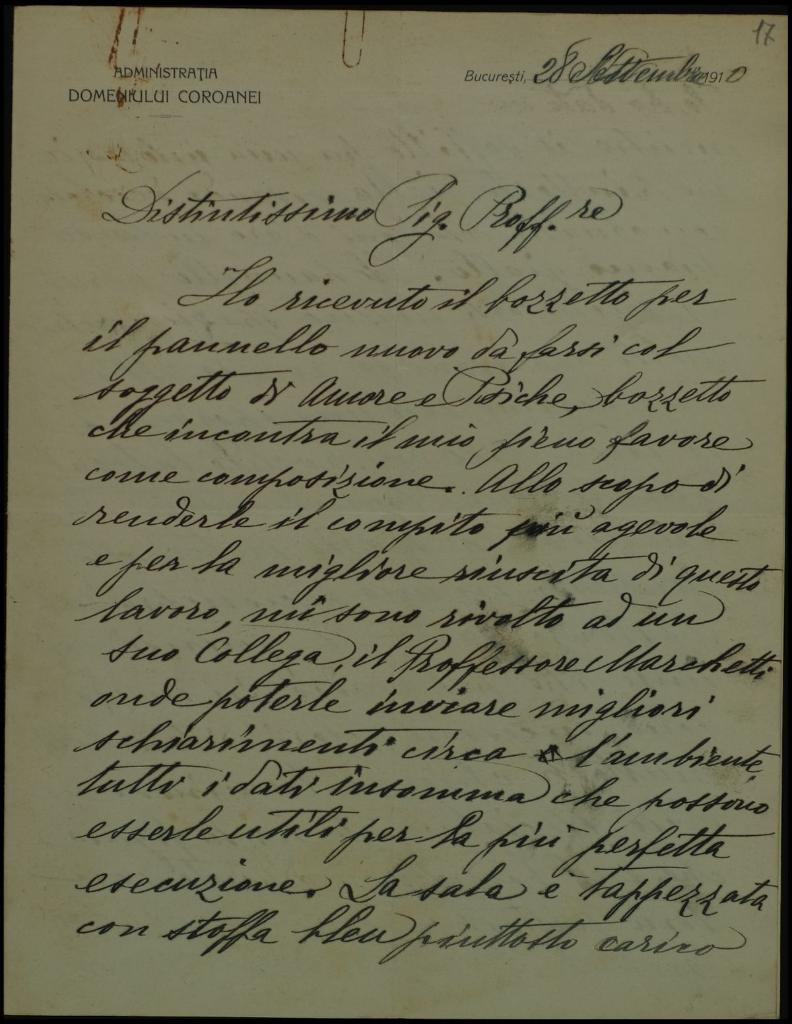 17
ADMINISTRAŢIA
DOMENIULUI COROANEI
Bucureşti, 28 Settembre 1910
Distintissimo Sig. Proff.re
Ho ricevuto il bozzetto per
il pannello nuovo da farsi col
soggetto di Amore e Psiche, bozzetto
che incontra il mio pieno favore
come composizione. Allo scopo di
renderle il compito più agevole
e per la migliore riuscita di questo
lavoro, mi sono rivolto ad un
suo Collega, il Proffessore Marchetti
onde poterle inviare migliori
schiarimenti circa l'ambiente,
tutti i dati insomma che possono
esserle utili per la più perfetta
esecuzione. La sala è tappezzata
con stoffa bleu piuttosto carico